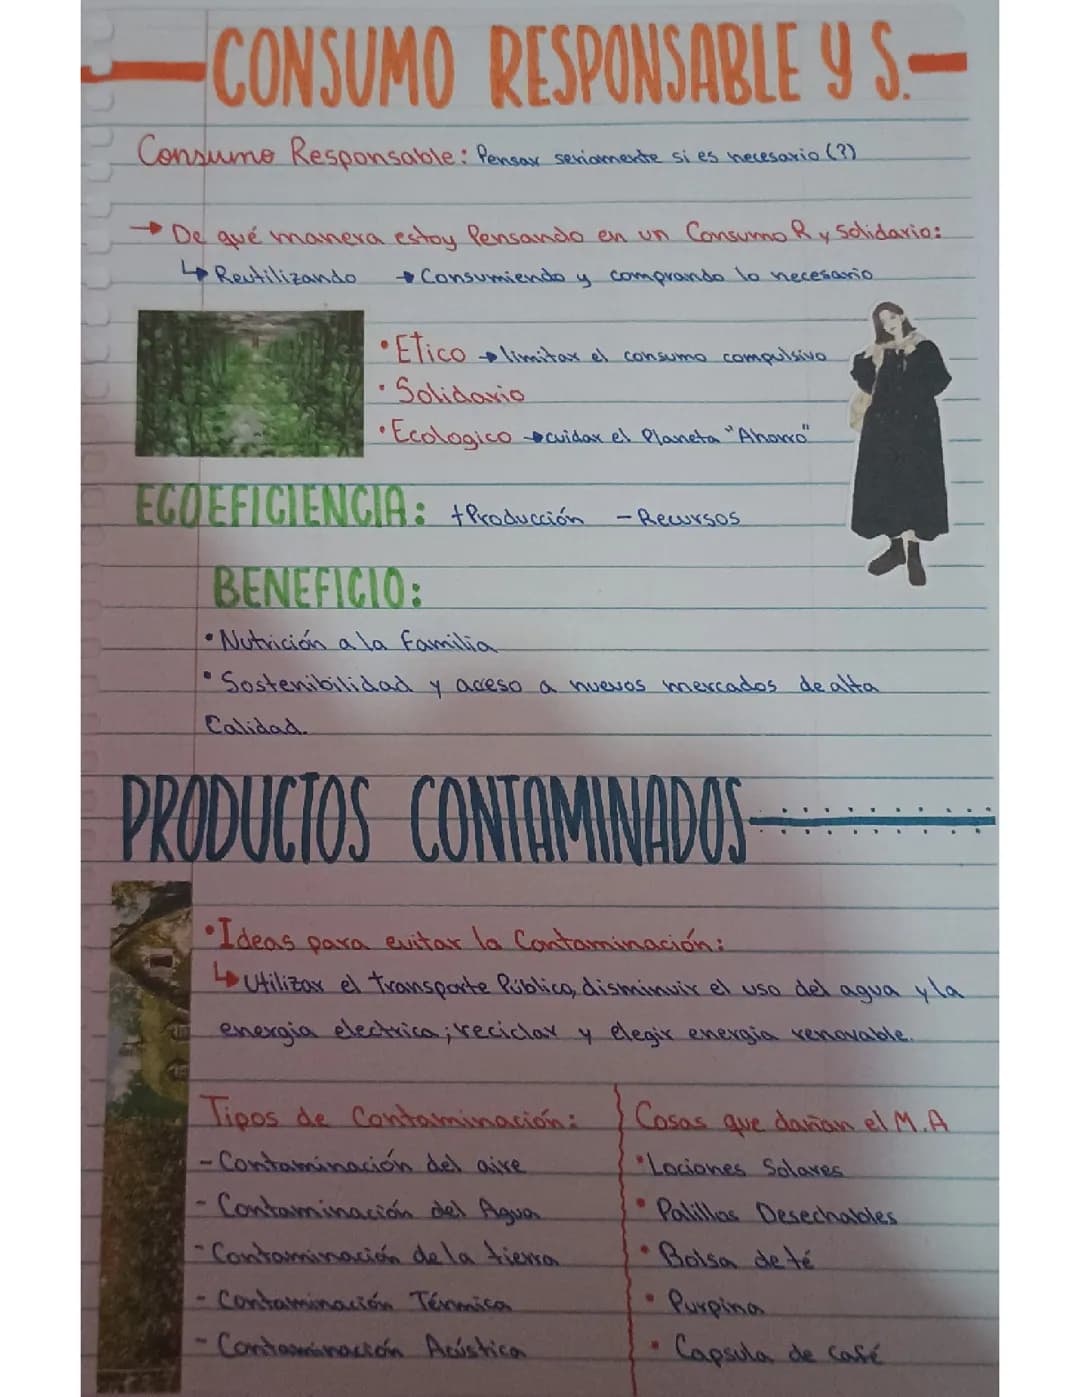 CONSUMO RESPONSABLE Y S.
Consumo Responsable: Pensar seriamente si es necesario (?)
→ De qué manera estoy Pensando en un Consumo R y Solidario:
↳ Reutilizando → Consumiendo y comprando lo necesario
• Etico → limitar el consumo compulsivo
• Solidario
• Ecologico → cuidar el Planeta "Ahorro"
ECOEFICIENCIA: + Producción - Recursos
BENEFICIO:
• Nutrición a la Familia
• Sostenibilidad y acceso a nuevos mercados de alta
Calidad.
PRODUCTOS CONTAMINADOS
• Ideas para evitar la Contaminación:
↳ Utilizar el transporte Público, disminuir el uso del agua y la
energia electrica; reciclar y elegir energia renovable.
Tipos de Contaminación:
- Contaminación del aire
- Contaminación del Agua
- Contaminación de la tierra
- Contaminación Térmica
- Contaminación Acústica
Cosas que dañan el M.A
• Lociones Solares
• Palillos Desechables
• Bolsa de té
• Purpina
• Capsula de café